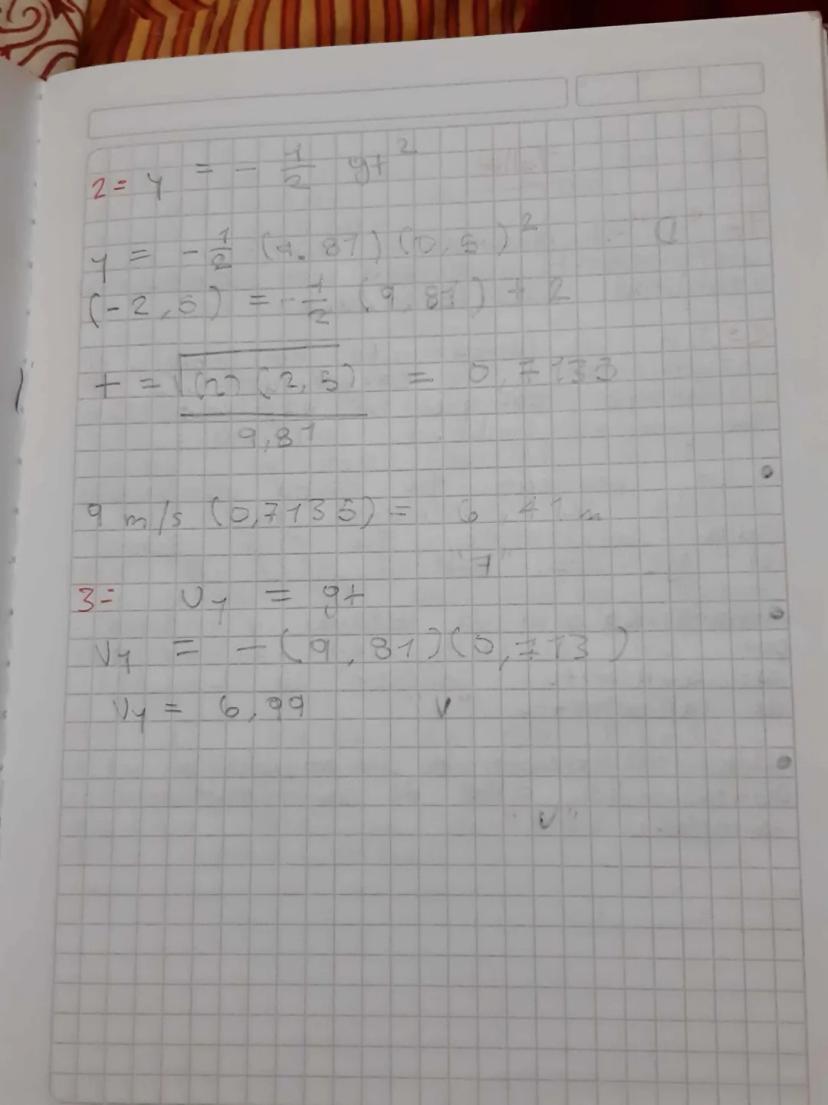 2= y = - 1/2 gt²
y = - 1/2 (9.81) (0,5)²
(-2,5) = - 1/2 (9,81) t 2
t = √(2) (2,5) / 9,81 = 0,7133
9 m/s (0,7135) = 6,41 m
7
3= Vy = gt
Vy = -(9,81)(0,713)
Vy = 6,99 V
V